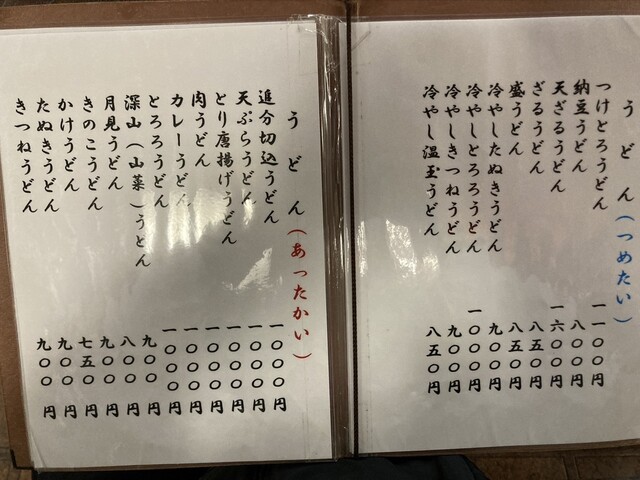 うどん(つめたい)
つけとろうどん 一一〇〇円
納豆うどん 八〇〇円
天ざるうどん 一六〇〇円
ざるうどん 八五〇円
盛うどん 八五〇円
冷やしたぬきうどん 九〇〇円
冷やしとろろうどん 一〇〇〇円
冷やしきつねうどん 九〇〇円
冷やし温玉うどん 八五〇円
うどん(あったかい)
追分切込うどん 一〇〇〇円
天ぷらうどん 一〇〇〇円
とり唐揚げうどん 一〇〇〇円
肉うどん 一〇〇〇円
カレーうどん 一〇〇〇円
とろろうどん 一〇〇〇円
深山(山菜)うどん 九〇〇円
月見うどん 八〇〇円
きのこうどん 九〇〇円
かけうどん 七五〇円
たぬきうどん 九〇〇円
きつねうどん 九〇〇円